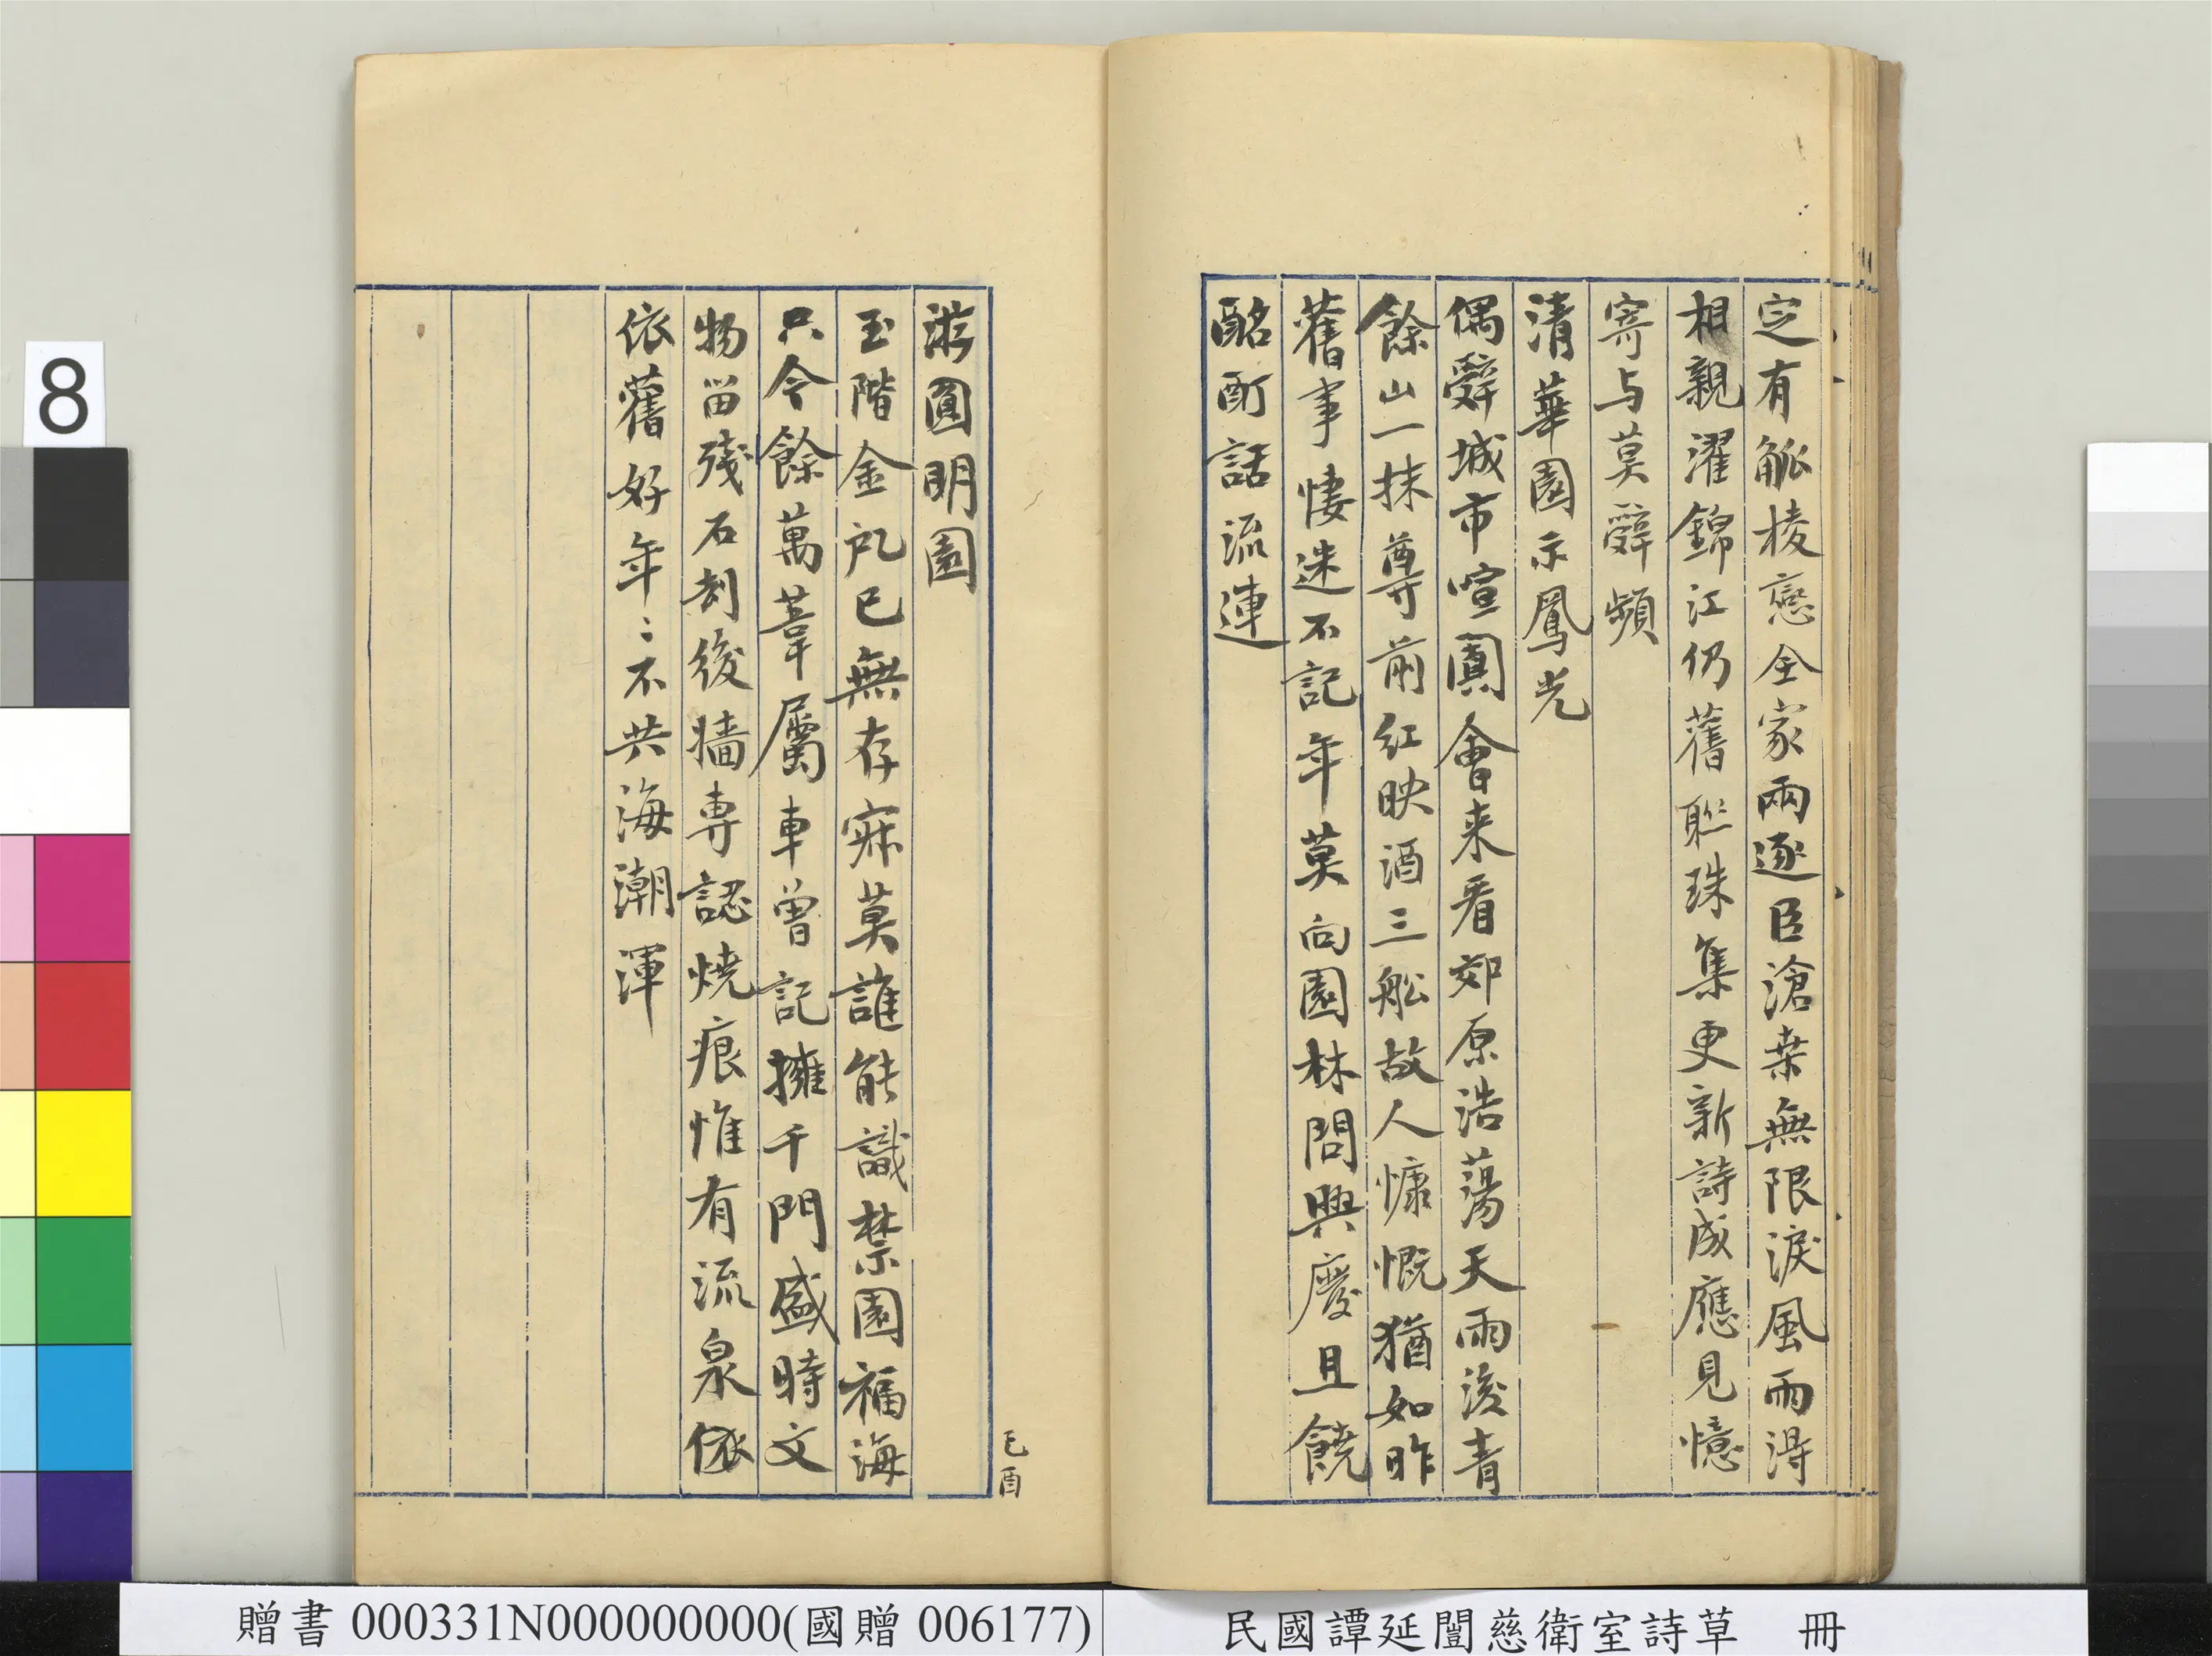 定有觚棱戀全家兩逐臣滄桒無限淚風雨淂
相親濯錦江仍舊聮珠集更新詩成應見憶
寄与莫辭頻
清華園示鳳光
偶辭城市喧闐會来看郊原浩蕩天雨後青
餘山一抹尊前紅映酒三舩故人慷慨猶如昨
舊事悽迷不記年莫向園林問興慶且饒
酩酊話流連
游圓明園
玉階金戺已無存寂莫誰能識禁園福海
只今餘萬葦屬車曾記擁千門盛時文
物留殘石刼後牆専認燒痕惟有流泉依
依舊好年〻不共海潮渾
己酉
8
贈書000331N000000000(國贈006177)
民國譚延闓慈衛室詩草 冊